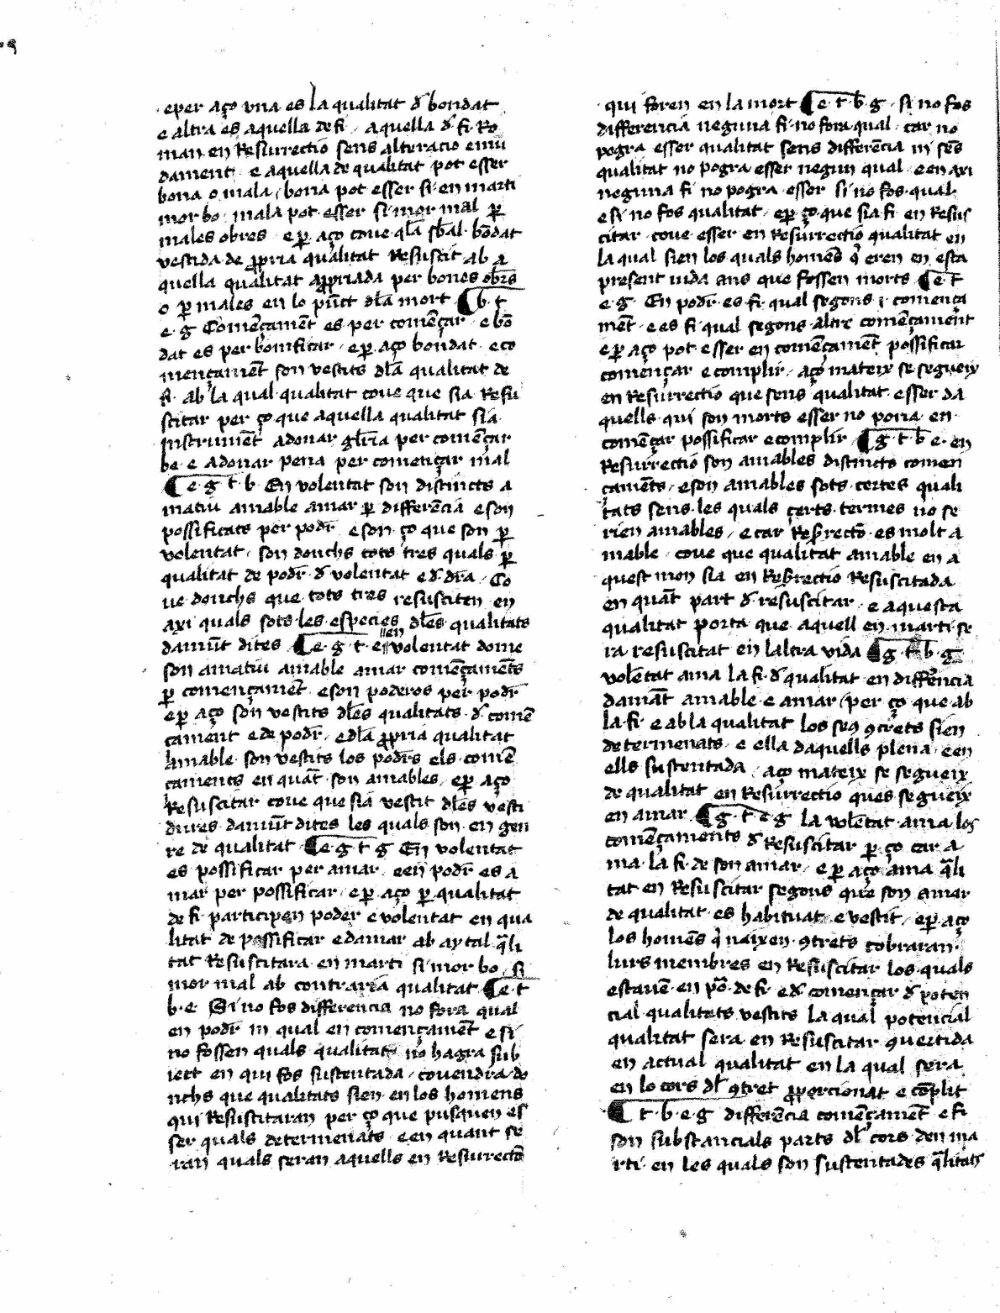 eper aço vna es la qualitat d bondat
e altra es aquella de fi · aquella d fi Ro
man en Resurrectio sens alteracio e mu
dament · e aquella de qualitat pot esser
bona o mala / bona pot esser si en marti
mor bo · mala pot esser si mor mal p̲
males obres · e p̲ aço coue q̃la sb̃al bõdat
vestida de p̲pria qualitat Resuscit ab a
quella qualitat app̲riada per bones obr̃s
o p̲ males en lo pũct dl̃a mort ¶ b · t
e · g Comẽçamẽt es per comẽçar · e bõ
dat es per bonificar · e p̲ aço bondat e co
mençamẽt son vestits dl̃a qualitat de
fi · ab la qual qualitat coue que sia Resu
scitar per ço que aquella qualitat sia
instrumẽt a donar gl̃ria per comẽçar
be · e a donar pena per començar mal
¶ e · g · t · b · En volentat son distincts a
matiu amable amar p̲ differẽcia e son
possificats per podr̃ · e son ço que son p̲
volentat · son donchs tots tres quals p̲
qualitat de podr̃ · d volentat e d dr̃a · Co
ue donchs que tots tres resusciten en
axi quals sots les especies dl̃es qualitats
damũt dites ¶ e · g · t · e · en volentat dome
son amatiu amable amar comẽçamẽts
p̲ començamẽt · e son poderos per podr̃
e p̲ aço son vestits dl̃es qualitats · d comẽ
çament e de podr̃ · e dl̃a p̲pria qualitat
amable · son vestits los podr̃s els comẽ
çaments en quãt son amables · e p̲ aço
Resuscitar coue que sia vestit dl̃es vesti
dures damũt dites les quals son en gen
re de qualitat ¶ e · g · t · g En volentat
es possificar per amar · e en podr̃ es a
mar per possificar · e p̲ aço p̲ qualitat
de fi participen poder e volentat en qua
litat de possificar e damar ab aytal q̃li
tat Resuscitara en marti si mor bo · si
mor mal ab contraria qualitat ¶ e · t ·
b · e · Si no fos differencia no fora qual
en podr̃ ni qual en començamẽt e si
no fossen quals qualitats no hagra sub
iect en qui fos sustentada · couendra do
nchs que qualitats sien en los homens
qui Resuscitaran per ço que pusquen es
ser quals determenats · e en quant se
ran quals seran aquells en Resurrectõ
qui foren en la mort ¶ e · t · b · g · si no fos
differencia neguna fi · no fora qual · car no
pogra esser qualitat sens differẽcia ni sẽs
qualitat no pogra esser negun qual · e en axi
neguna fi no pogra esser si no fos qual
e si no fos qualitat · e p̲ ço que sia fi en Resus
citar · coue esser en Resurrectio qualitat en
la qual sien los quals homẽs q̃ eren en esta
present uida ans que fossen morts ¶ e · t
e · g · En podr̃ es fi qual segons i comença
mẽt · e es fi qual segons altre comẽçamẽt
e p̲ aço pot esser en comẽçamẽt possificar
començar e complir · aço mateix se segueix
en Resurrectio que sens qualitat esser da
quells qui son morts esser no poria en
comẽçar possificar e complir · ¶ g · t · b · e · en
Resurrectio son amables distincts comen
çamẽts · e son amables sots certes quali
tats sens les quals çerts termes no se
rien amables · e car Resr̃recto · es molt a
mable · coue que qualitat amable en a
quest mon sia en Resr̃rectio Resuscitada
en quãt part d resuscitar · e aquesta
qualitat porta que aquell en marti se
ra resuscitat en laltra vida ¶ g · t · b · g
volẽtat ama la fi · d qualitat en diffẽncia
damãt amable e amar / per ço que ab
la fi · e ab la qualitat los seus ꝯcrets sien
determenats · e ella daquells plena · e en
ells sustentada · aço mateix se segueix
de qualitat en Resurrectio ques segueix
en amar ¶ g · t · e · g · la volẽtat ama los
començaments d Resuscitar p̲ ço car a
ma la fi de son amar · e p̲ aço ama q̃li
tat en Resuscitar segons que son amar
de qualitat es habituat e vestit · e p̲ aço
los homẽs q̃ naixen ꝯtrets cobraran
lurs membres en Resuscitar los quals
estauẽ en põ de fi · e d comẽnçar d poten
cial qualitats vestits la qual potencial
qualitat sera en Resuscitar ꝯuertida
en actual qualitat en la qual sera
en lo cors dl̃ ꝯtret p̲porcionat e cõplit
¶ t · b · e · g differẽcia comẽçamẽt e fi
son substancials parts dl̃ cors den ma
rti · en les quals son sustentades q̃litats